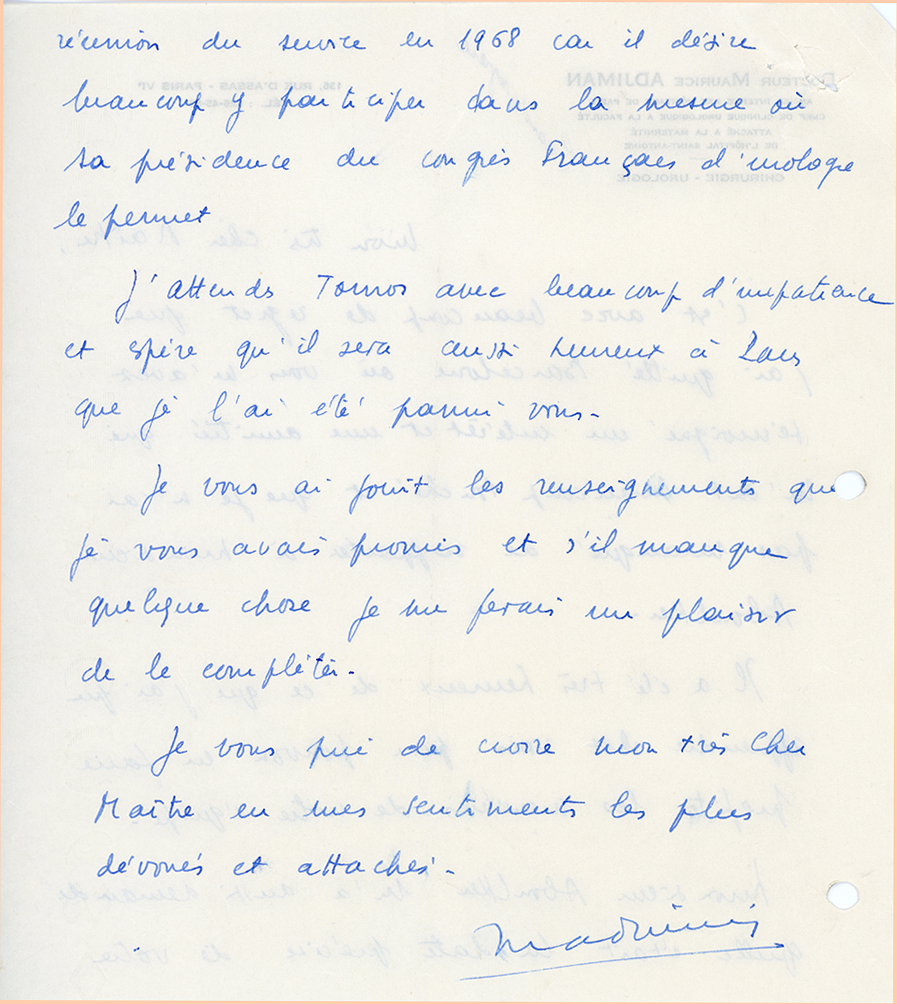 réunion du service en 1968 car il désire
beaucoup y participer dans la mesure où
sa présidence du congrès Français d'urologie
le permet
J'attends Tornos avec beaucoup d'impatience
et espère qu'il sera aussi heureux à Paris
que je l'ai été parmi vous.
Je vous ai joint les renseignements que
je vous avais promis et s'il manque
quelque chose je me ferais un plaisir
de le compléter.
Je vous prie de croire mon très Cher
Maître en mes sentiments les plus
dévoués et attachés.